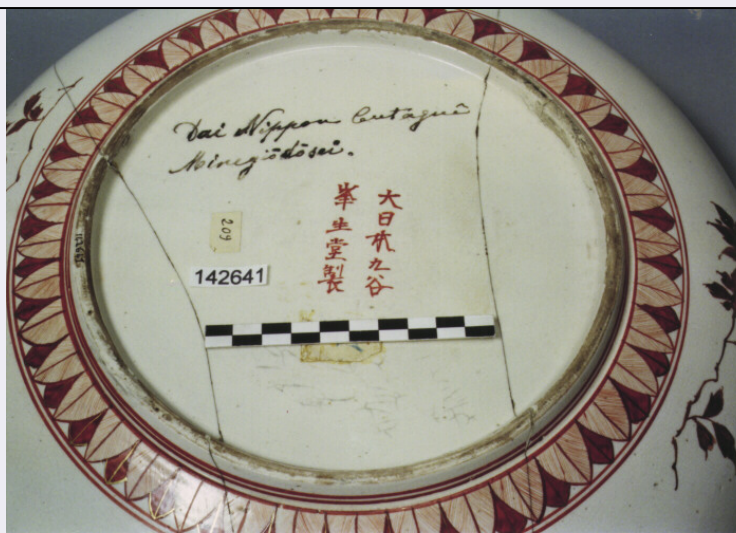 Dai Nippon Cutaguê
Minegiōdōsei.
大日本九谷
峯生堂製
209
142641